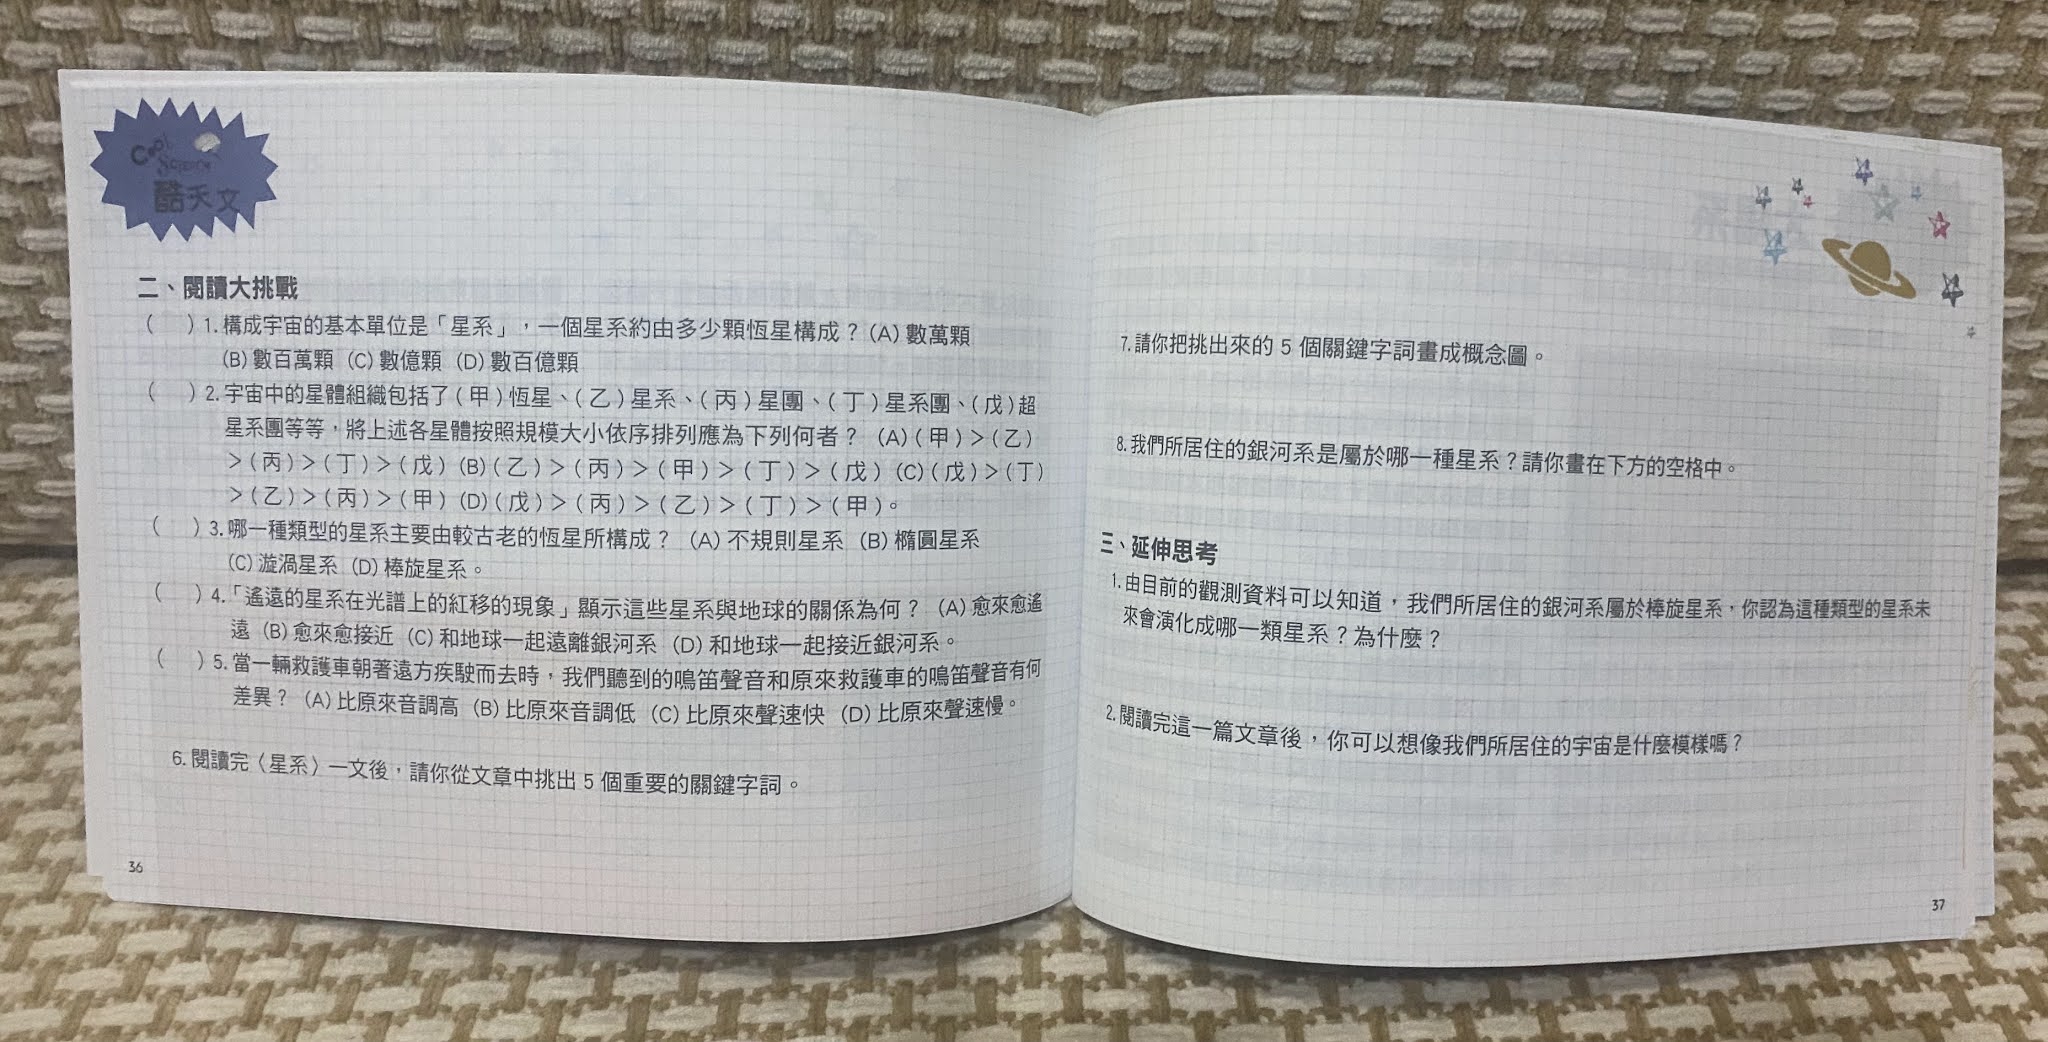 Cool
SCIENCE
酷天文
二、閱讀大挑戰
(　　) 1. 構成宇宙的基本單位是「星系」，一個星系約由多少顆恆星構成？(A) 數萬顆
(B) 數百萬顆 (C) 數億顆 (D) 數百億顆
(　　) 2. 宇宙中的星體組織包括了(甲)恆星、(乙)星系、(丙)星團、(丁)星系團、(戊)超
星系團等等，將上述各星體按照規模大小依序排列應為下列何者？ (A)(甲)＞(乙)
＞(丙)＞(丁)＞(戊) (B)(乙)＞(丙)＞(甲)＞(丁)＞(戊) (C)(戊)＞(丁)
＞(乙)＞(丙)＞(甲) (D)(戊)＞(丙)＞(乙)＞(丁)＞(甲)。
(　　) 3. 哪一種類型的星系主要由較古老的恆星所構成？ (A) 不規則星系 (B) 橢圓星系
(C) 漩渦星系 (D) 棒旋星系。
(　　) 4.「遙遠的星系在光譜上的紅移的現象」顯示這些星系與地球的關係為何？ (A) 愈來愈遙
遠 (B) 愈來愈接近 (C) 和地球一起遠離銀河系 (D) 和地球一起接近銀河系。
(　　) 5. 當一輛救護車朝著遠方疾駛而去時，我們聽到的鳴笛聲音和原來救護車的鳴笛聲音有何
差異？ (A) 比原來音調高 (B) 比原來音調低 (C) 比原來聲速快 (D) 比原來聲速慢。
6. 閱讀完〈星系〉一文後，請你從文章中挑出 5 個重要的關鍵字詞。
36
7. 請你把挑出來的 5 個關鍵字詞畫成概念圖。
8. 我們所居住的銀河系是屬於哪一種星系？請你畫在下方的空格中。
三、延伸思考
1. 由目前的觀測資料可以知道，我們所居住的銀河系屬於棒旋星系，你認為這種類型的星系未
來會演化成哪一類星系？為什麼？
2. 閱讀完這一篇文章後，你可以想像我們所居住的宇宙是什麼模樣嗎？
37